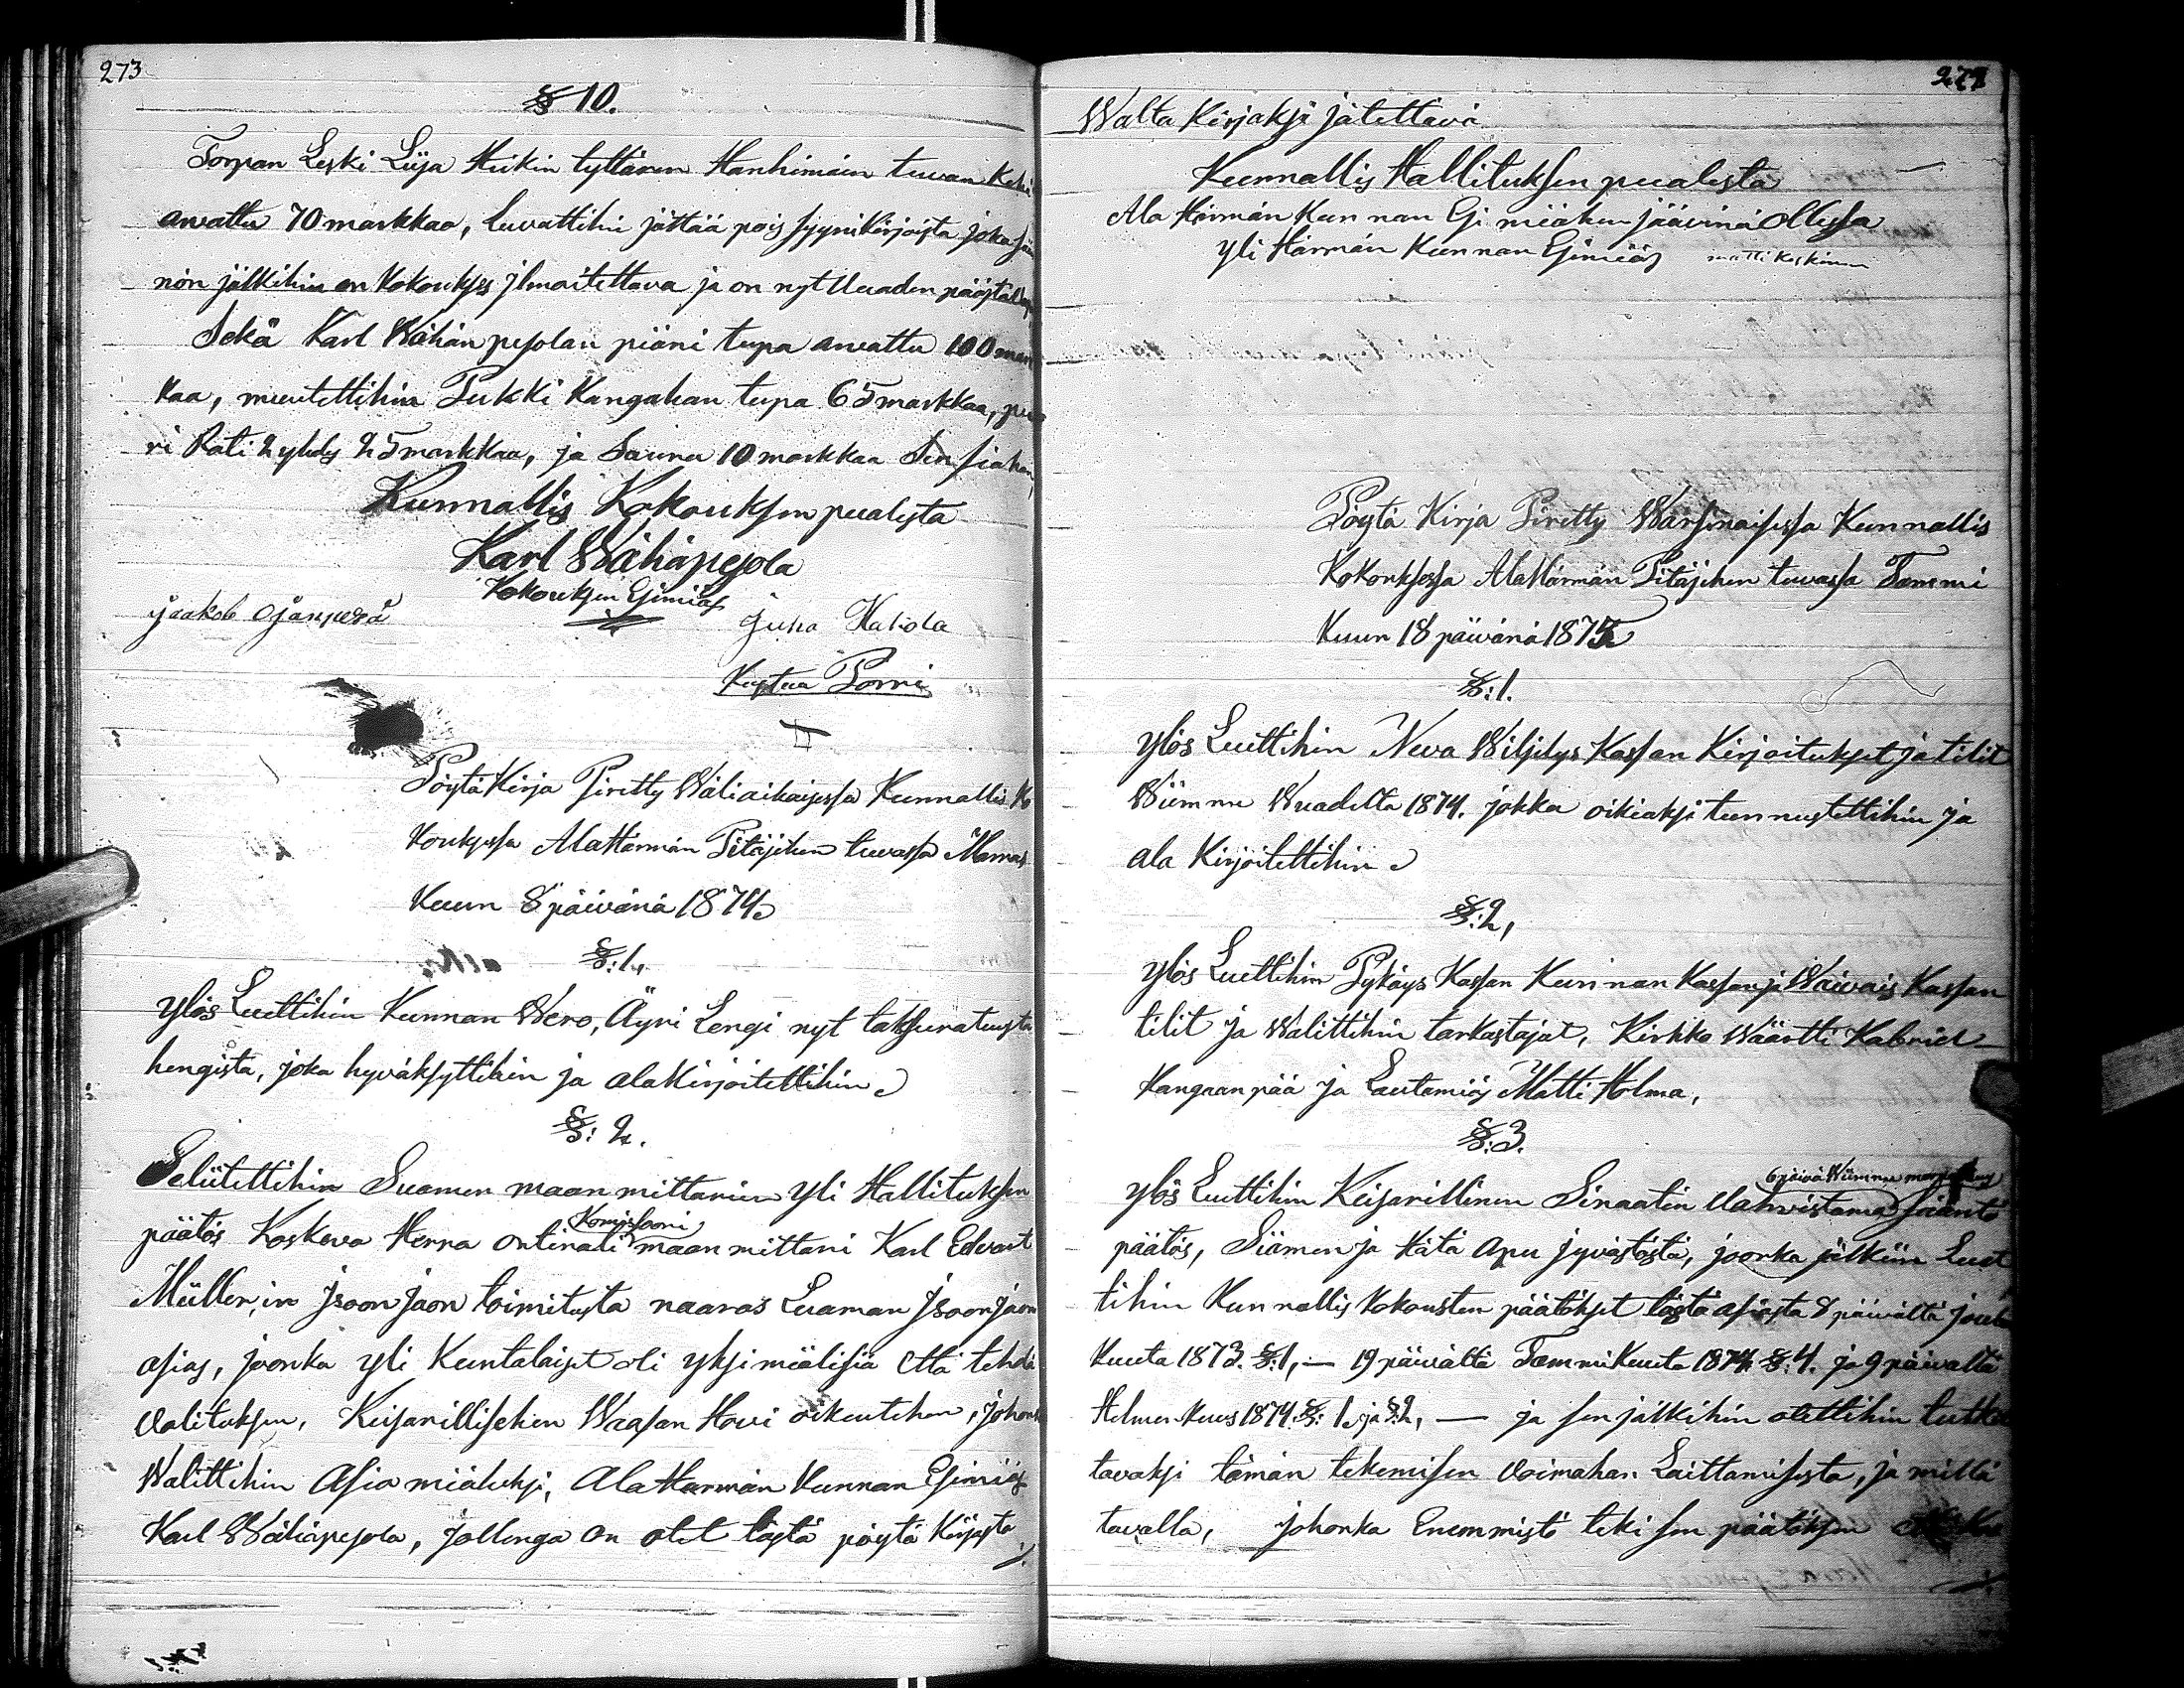 273
§ 10.
Torpan Leski Liisa Heikin tyttären Hanhimäin tuvan Kehi
arvattu 70 markkaa, luvattihin jättää pois syynikirjoista joka
nön jälkihin on Kokoukses jlmoitettava ja on nyt Uuaden päästä
Sekä Karl Wähänpesolan piäni tupa arvattu 100 mark
kaa, muutettihin Pukki Kangahan tupa 65 markkaa, puo
ri Rati 2 yhdes 25 markkaa, ja Sauna 10 markkaa Sen siahan,
Kunnallis Kokouksen puolesta
Karl Wähäpesola
Kokouksen Esimiäs
jaakob Ojanperä
Juha Hakola
Kustaa Porri
Pöytä Kirja Piretty Wäliaikaisessa Kunnallis Ko
kouksessa AlaHärmän Pitäjähen tuvassa Marras
Kuun 8 päivänä 1874
§: 1.
Ylös Luettihin Kunnan Wero, Äyri Lengi nyt taksuratuista
hengista, joka hyväksyttihin ja alaKirjoitettihin
§: 2.
Seliitettihin Suomen maan mittarien Yli Hallituksen
Komissooni
päätös Koskeva Herra Ontinati maan mittari Karl Edvart
Müller,in Jsoon Jaon toimitusta naaras Luaman Jsoonjaon
asias, joonka yli Kuntalaiset oli yksimiälisiä että tehdä
Valituksen, Keisarillisehen Waasan Hovi oikeutehen, johonk
Walittihin Asia miäheksi, AlaHärmän Kunnan Esimiäs
Karl Wähäpesola, Jollenga on otet tästä pöytä Kirjasta
Walta Kirjaksi jätettävä
Kunnallis Hallituksen puolesta
Ala Härmän Kunnan Esi miähen jäävinä Ollessa
Yli Härmän Kunnan Esimiäs matti Koskinen
Pöytä Kirja Piretty Warsinaisessa Kunnallis
Kokouksessa AlaHärmän Pitäjähen tuvassa Tammi
Kuun 18 päivänä 1875
§: 1.
Ylös Luettihin Neva Wiljelys Kassan Kirjoitukset ja tilit
Wiimme Wuadelta 1874. jokka oikiaksi tunnustettihin ja
ala Kirjoitettihin
§: 2,
Ylös Luettihin Pykäys Kassan Kunnan Kassan ja Waivais Kassan
tilit ja Walittihin tarkastajat, Kirkko Wäärtti Kabriel
Kangaanpää ja Lautamiäs Matti Holma,
§: 3.
6 päivä Wiimme
Ylös Luettihin Keisarillinen Sinaatin Vahvistama Sääntö
päätös, Siämen ja Kätä apu jyvästöstä, joonka jälkiin Luet
tihin Kunnallis Kokousten päätökset tästä asiasta 8 päivältä joulu
Kuuta 1873. §: 1, — 19 päivältä TammiKuuta 1874 §: 4. ja 9 päivältä
Helmen Kuus 1874. §: 1. ja §: 2, — ja sen jälkihin otettihin tutkit
tavaksi tämän tekemisen Voimahan Laittamisesta, ja millä
tavalla, johonka Enemmistö teki sen päätöksen